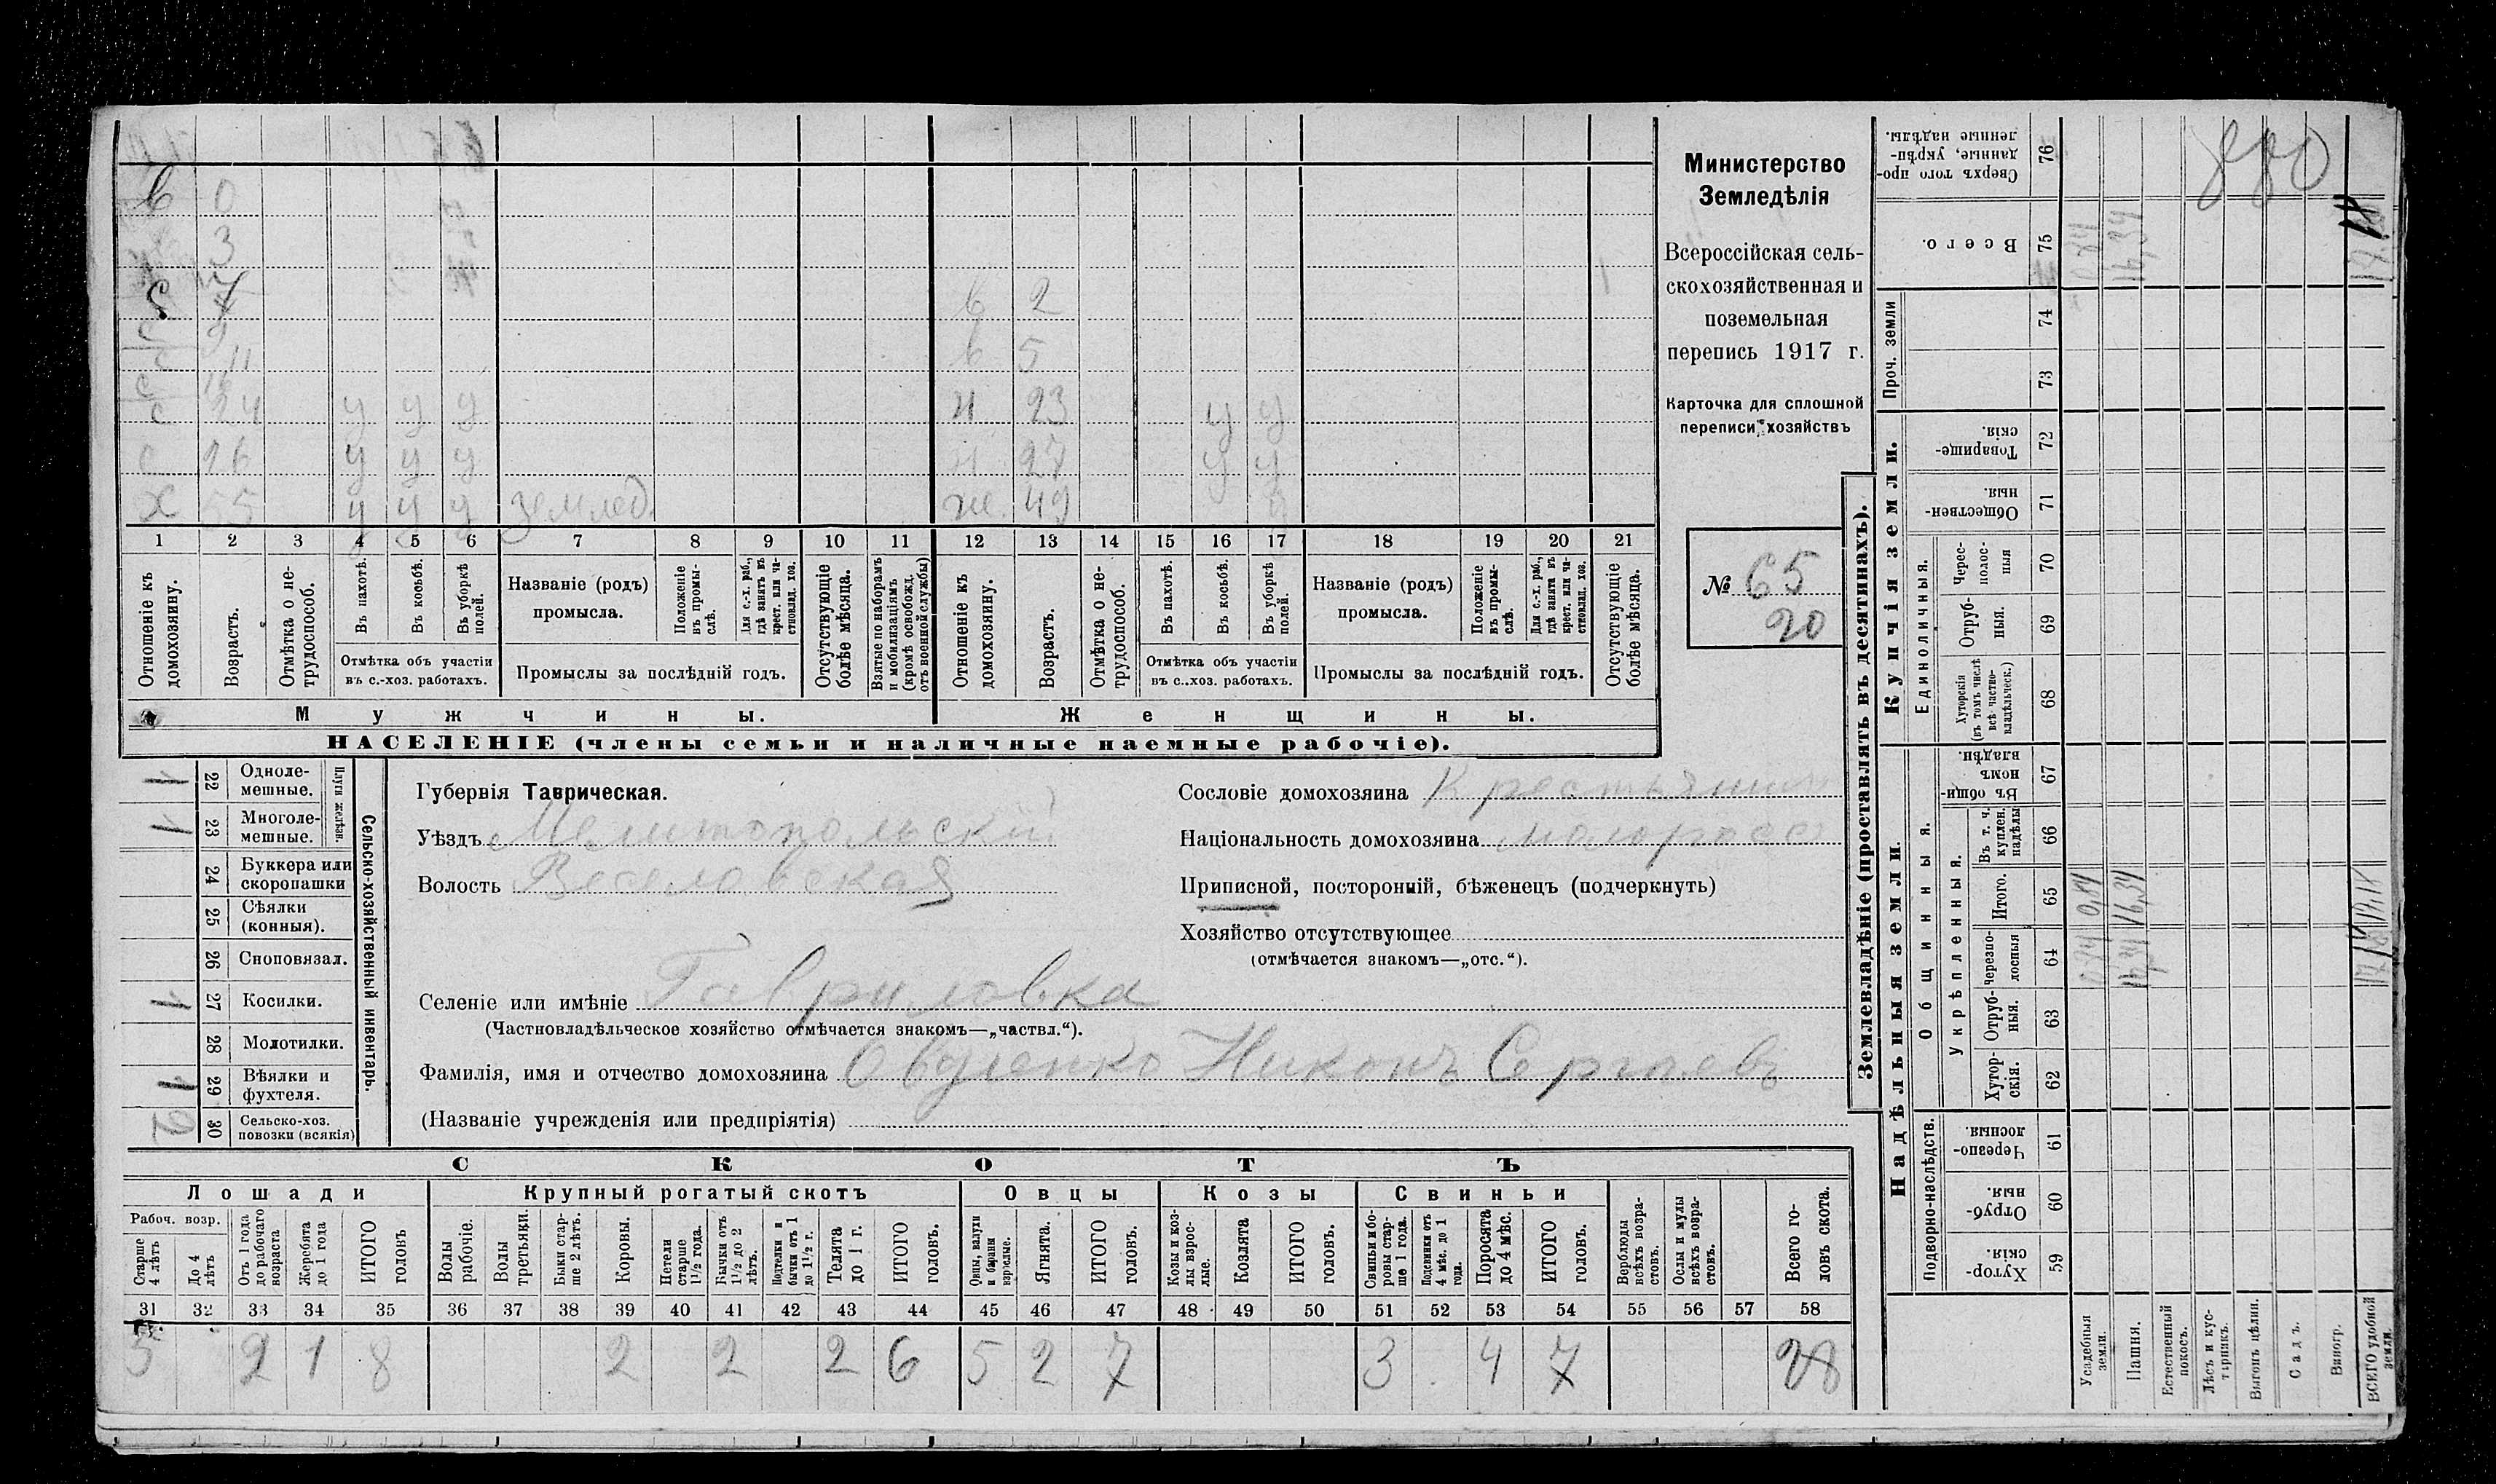 в 0
3
с 7
с 9
с 11
с
с 24 у у у
с 26 у у у
х 55 у у у землед.
в 2
в 5
н 23 у у
н 27 у у
ж. 49 у
1 2 3 4 5 6 7 8 9 10 11 12 13 14 15 16 17 18 19 20 21
Отношеніе къ домохозяину.
Возрастъ.
Отмѣтка о не-
трудоспособ.
Въ пахотѣ.
Въ косьбѣ.
Въ уборкѣ полей.
Отмѣтка объ участіи
въ с.-хоз. работахъ.
Названіе (родъ)
промысла.
Положеніе въ промы-
слѣ.
Для с.-х. раб.,
гдѣ занятъ въ
крест. или ча-
стновлад. хоз.
Промыслы за послѣдній годъ.
Отсутствующіе
болѣе мѣсяца.
Взятые по наборамъ
и мобилизаціямъ
(кромѣ освобожд.
отъ военной службы)
Отношеніе къ
домохозяину.
Возрастъ.
Отмѣтка о не-
трудоспособ.
Въ пахотѣ.
Въ косьбѣ.
Въ уборкѣ
полей.
Отмѣтка объ участіи
въ с.-хоз. работахъ.
Названіе (родъ)
промысла.
Положеніе
въ промы-
слѣ.
Для с.-х. раб.,
гдѣ занята въ
крест. или ча-
стновлад. хоз.
Промыслы за послѣдній годъ.
Отсутствующіе
болѣе мѣсяца.
Мужчины.
Женщины.
НАСЕЛЕНІЕ (члены семьи и наличные наемные рабочіе).
Министерство
Земледѣлія
Всероссійская сель-
скохозяйственная и
поземельная
перепись 1917 г.
Карточка для сплошной
переписи хозяйствъ
№ 65
20
1 22 Одноле-
мешные.
1 23 Многоле-
мешные.
Плуги желѣзн.
24 Буккера или
скоропашки
25 Сѣялки
(конныя).
26 Сноповязал.
1 27 Косилки.
28 Молотилки.
1 29 Вѣялки и
фухтеля.
2 30 Сельско-хоз.
повозки (всякія)
Сельско-хозяйственный инвентарь.
Губернія Таврическая.
Уѣздъ Мелитопольскій
Волость Веселовская
Сословіе домохозяина Крестьянинъ
Національность домохозяина малороссъ
Приписной, посторонній, бѣженецъ (подчеркнуть)
Хозяйство отсутствующее
(отмѣчается знакомъ—„отс.“).
Селеніе или имѣніе Гавриловка
(Частновладѣльческое хозяйство отмѣчается знакомъ—„частвл.“).
Фамилія, имя и отчество домохозяина Овдіенко Никонъ Сергѣевъ
(Названіе учрежденія или предпріятія)
СКОТЪ
Лошади
Крупный рогатый скотъ
Овцы
Козы
Свиньи
Рабоч. возр.
Старше
4 лѣтъ
До 4
лѣтъ
Отъ 1 года
до рабочаго
возраста
Жеребята
до 1 года
ИТОГО
головъ
Волы
рабочіе.
Волы
третьяки.
Быки стар-
ше 2 лѣтъ.
Коровы.
Нетели
старше
1½ года.
Бычки отъ
1½ до 2
лѣтъ.
Подтелки и
бычки отъ 1
до 1½ г.
Телята
до 1 г.
ИТОГО
головъ.
Овцы, валухи
и бараны
взрослые.
Ягнята.
ИТОГО
головъ.
Козы и коз-
лы взрос-
лые.
Козлята
ИТОГО
головъ.
Свиньи и бо-
ровы стар-
ше 1 года.
Подсвинки отъ
4 мѣс. до 1
года.
Поросята
до 4 мѣс.
ИТОГО
головъ.
Верблюды
всѣхъ возра-
стовъ.
Ослы и мулы
всѣхъ возра-
стовъ.
Всего го-
ловъ скота.
31 32 33 34 35 36 37 38 39 40 41 42 43 44 45 46 47 48 49 50 51 52 53 54 55 56 57 58
5 2 1 8 2 2 2 6 5 2 7 3 4 7 28
Землевладѣніе (проставлять въ десятинахъ).
Надѣльныя земли.
Купчія земли.
Проч. земли
Подворно-наслѣдств.
Общинныя.
Укрѣпленныя.
Единоличныя.
Сверхъ того про-
данные, укрѣп-
ленные надѣлы.
76
Всего.
75
74
73
Товарище-
скія.
72
Обществен-
ныя.
71
Черес-
полос-
ныя
70
Отруб-
ныя.
69
Хуторскія
(въ томъ числѣ
всѣ частно-
владѣльческ.)
68
Въ общин-
номъ
владѣн.
67
Въ т. ч.
куплен.
надѣлы
66
Итого.
65
Черезпо-
лосныя
64
Отруб-
ныя.
63
Хутор-
скія.
62
Черезпо-
лосныя.
61
Отруб-
ныя.
60
Хутор-
скія.
59
Усадебныя
земли.
Пашня.
Естественный
покосъ.
Лѣсъ и кус-
тарникъ.
Выгонъ цѣлин.
Садъ.
Виногр.
ВСЕГО удобной
земли.
880
0,84 16,34
0,84 16,34 17,18
0,84 16,34 17,18